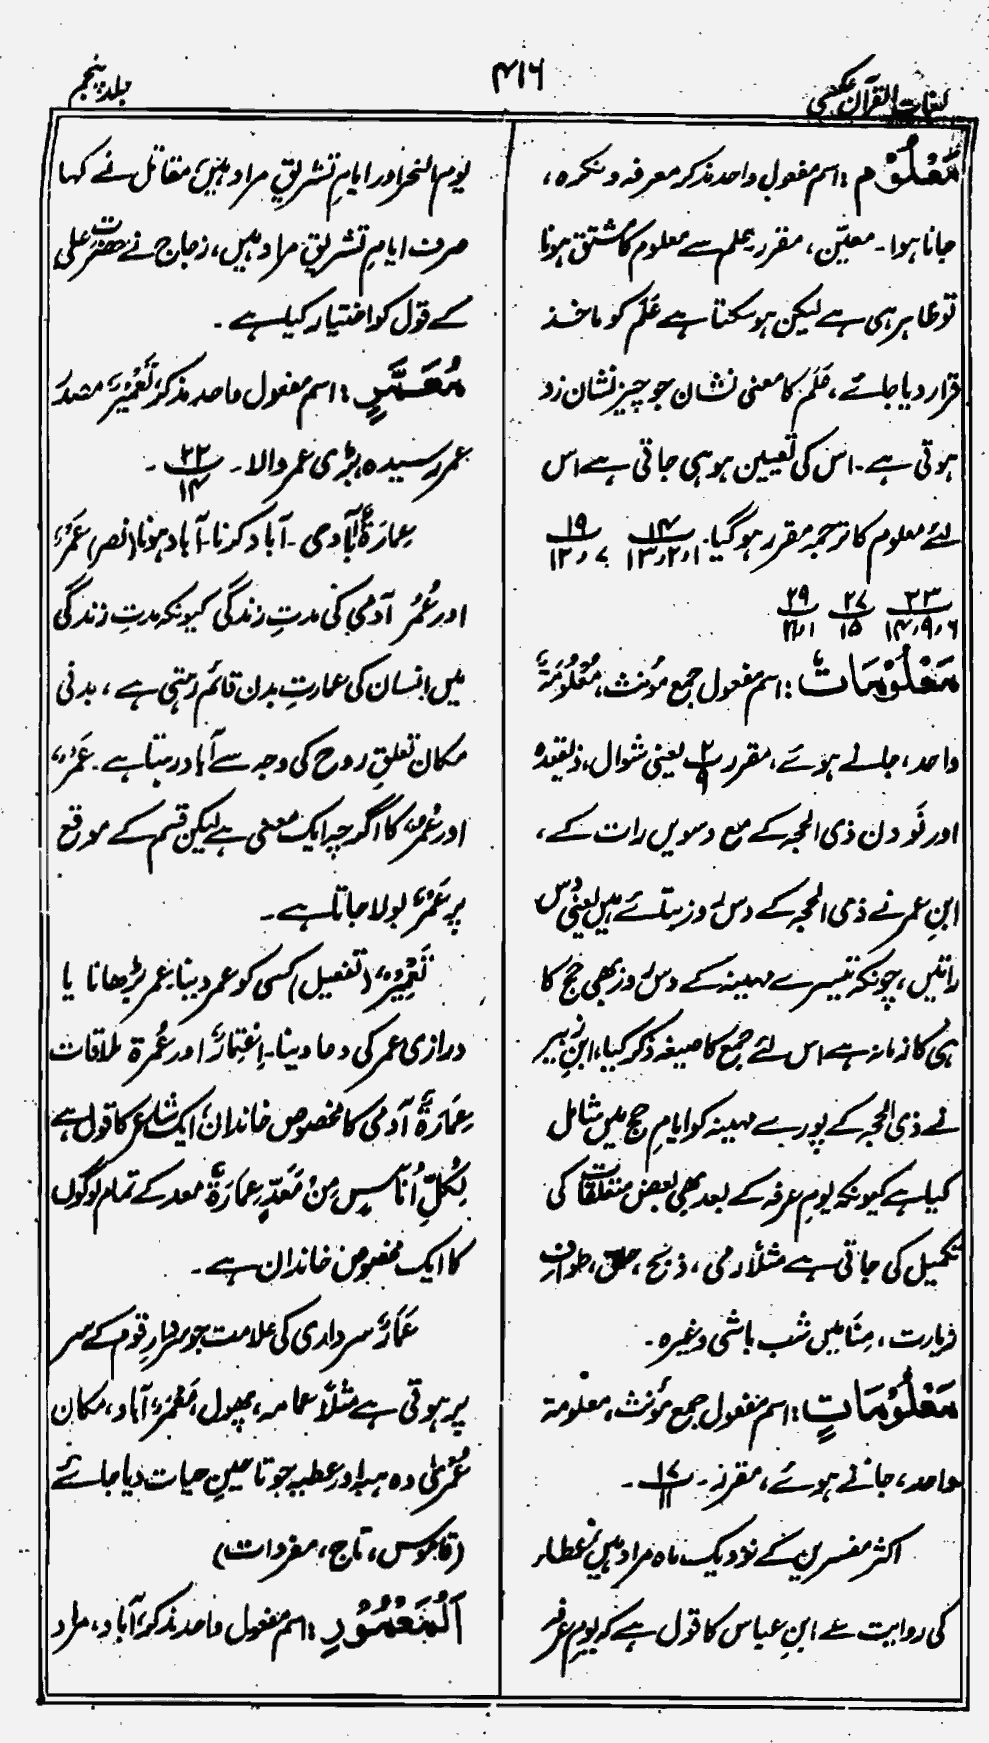 لغات القرآن عکسی
۴۱۶
جلد پنجم
مَعْلُوْم : اسم مفعول واحد مذکر معرفہ و نکرہ،
جانا ہوا۔ معیّن، مقرر۔ علم سے معلوم کا مشتق ہونا
تو ظاہر ہی ہے لیکن ہو سکتا ہے عَلَم کو ماخذ
قرار دیا جائے، عَلَم کا معنی نشان جو چیز نشان زد
ہوتی ہے۔ اس کی تعیین ہو ہی جاتی ہے اس
لئے معلوم کا ترجمہ مقرر ہو گیا۔ ۱۴/۱۳،۲،۱ ۱۹/۱۲،۷
۲۳/۱۴،۹،۶ ۲۷/۱۵ ۲۹/۲۱،۱
مَعْلُوْمَاتٌ : اسم مفعول جمع مؤنث، مَعْلُوْمَۃٌ
واحد، جانے ہوئے، مقرر ۲/۹ یعنی شوال، ذیقعدہ
اور نَو دن ذی الحجہ کے مع دسویں رات کے،
ابنِ عمر نے ذی الحجہ کے دس روز بتائے ہیں یعنی دس
راتیں، چونکہ تیسرے مہینہ کے دس روز بھی حج کا
ہی کا زمانہ ہے اس لئے جمع کا صیغہ ذکر کیا، ابنِ زبیر
نے ذی الحجہ کے پورے مہینہ کو ایامِ حج میں شامل
کیا ہے کیونکہ یومِ عرفہ کے بعد بھی بعض متعلقات کی
تکمیل کی جاتی ہے مثلاً رمی، ذبح، حلق، طوافِ
زیارت، مِنَا میں شب باشی وغیرہ۔
مَعْلُوْمَاتٍ : اسم مفعول جمع مؤنث، معلومۃ
واحد، جانے ہوئے، مقرر۔ ۱۷/۱۱۔
اکثر مفسرین کے نزدیک ماہ مراد ہیں، عطار
کی روایت سے ابنِ عباس کا قول ہے کہ یومِ عرفہ
یوم النحر اور ایامِ تشریقِ مراد ہیں، مقاتل نے کہا
صرف ایامِ تشریقِ مراد ہیں، زجاج نے حضرت علی
کے قول کو اختیار کیا ہے۔
مُعَمَّرٍ : اسم مفعول واحد مذکر، تَعْمِیْرٌ مصدر
عمر رسیدہ، بڑی عمر والا۔ ۲۲/۱۴۔
عِمَارَۃٌ آبادی۔ آباد کرنا۔ آباد ہونا (نصر) عَمْرٌ،
اور عُمُرٌ آدمی کی مدتِ زندگی کیونکہ مدتِ زندگی
میں انسان کی عمارتِ بدن قائم رہتی ہے، بدنی
مکان تعلقِ روح کی وجہ سے آباد رہتا ہے۔ عَمْرٌ،
اور عُمُرٌ کا اگرچہ ایک معنی ہے لیکن قسم کے موقع
پر عَمْرٌ بولا جاتا ہے۔
تَعْمِیْرٌ، (تفعیل) کسی کو عمر دینا، عمر بڑھانا یا
درازی عمر کی دعا دینا۔ اِعْتِمَارٌ اور عُمرۃ ملاقات
عِمَارَۃٌ آدمی کا مخصوص خاندان، ایک شاعر کا قول ہے
لِکُلِّ اُنَاسٍ مِنْ مَعَدٍّ عِمَارَۃٌ معد کے تمام لوگوں
کا ایک مخصوص خاندان ہے۔
عَمَارٌ سرداری کی علامت جو سردارِ قوم کے سر
پر ہوتی ہے مثلاً عمامہ، پھول، مَعْمَرٌ، آباد، مکان
عُمْرٰی وہ ہبہ اور عطیہ جو تا حینِ حیات دیا جائے
(قاموس، تاج، مفردات)
اَلْمَعْمُوْرِ : اسم مفعول واحد مذکر، آباد، مراد